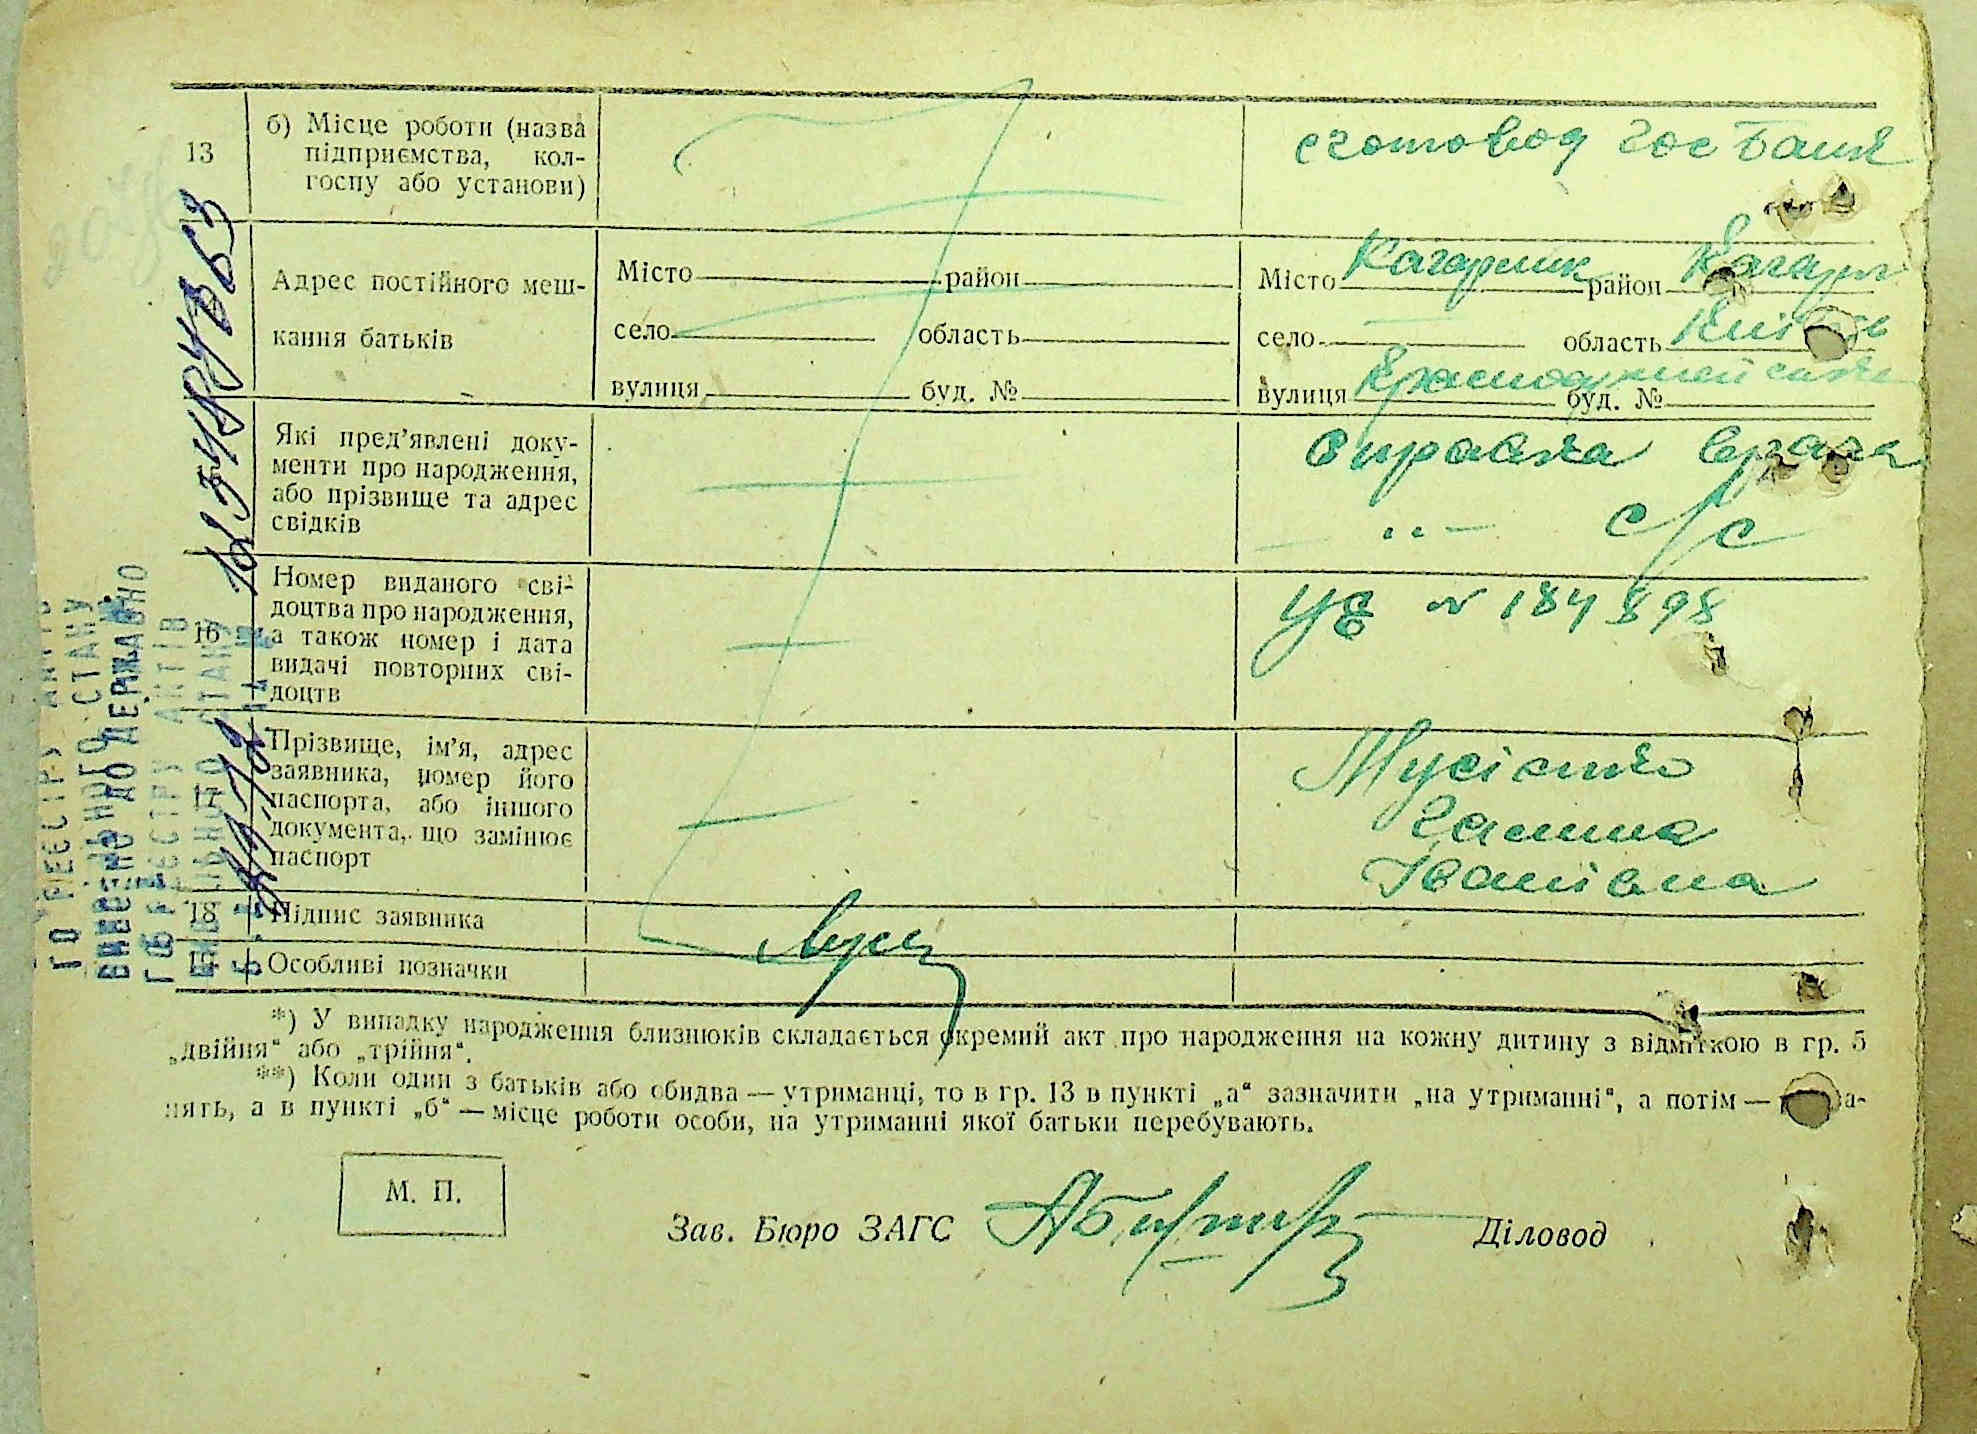 13
б) Місце роботи (назва
підприємства, кол-
госпу або установи)
счетовод Гос Банк
Адрес постійного меш-
кання батьків
Місто район
село область
вулиця буд. №
Місто Кагарлик район Кагарл
село — область
вулиця буд. №
Які пред’явлені доку-
менти про народження,
або прізвище та адрес
свідків
Справка врача
„ — с/с
16
Номер виданого сві-
доцтва про народження,
а також номер і дата
видачі повторних сві-
доцтв
№ 184898
17
Прізвище, ім’я, адрес
заявника, номер його
паспорта, або іншого
документа, що замінює
паспорт
Мусієнко
Галина
Іванівна
18
Підпис заявника
19
Особливі позначки
*) У випадку народження близнюків складається окремий акт про народження на кожну дитину з відміткою в гр. 5
„двійня“ або „трійня“.
**) Коли один з батьків або обидва — утриманці, то в гр. 13 в пункті „а“ зазначити „на утриманні“, а потім —
нять, а в пункті „б“ — місце роботи особи, на утриманні якої батьки перебувають.
М. П.
Зав. Бюро ЗАГС
Діловод